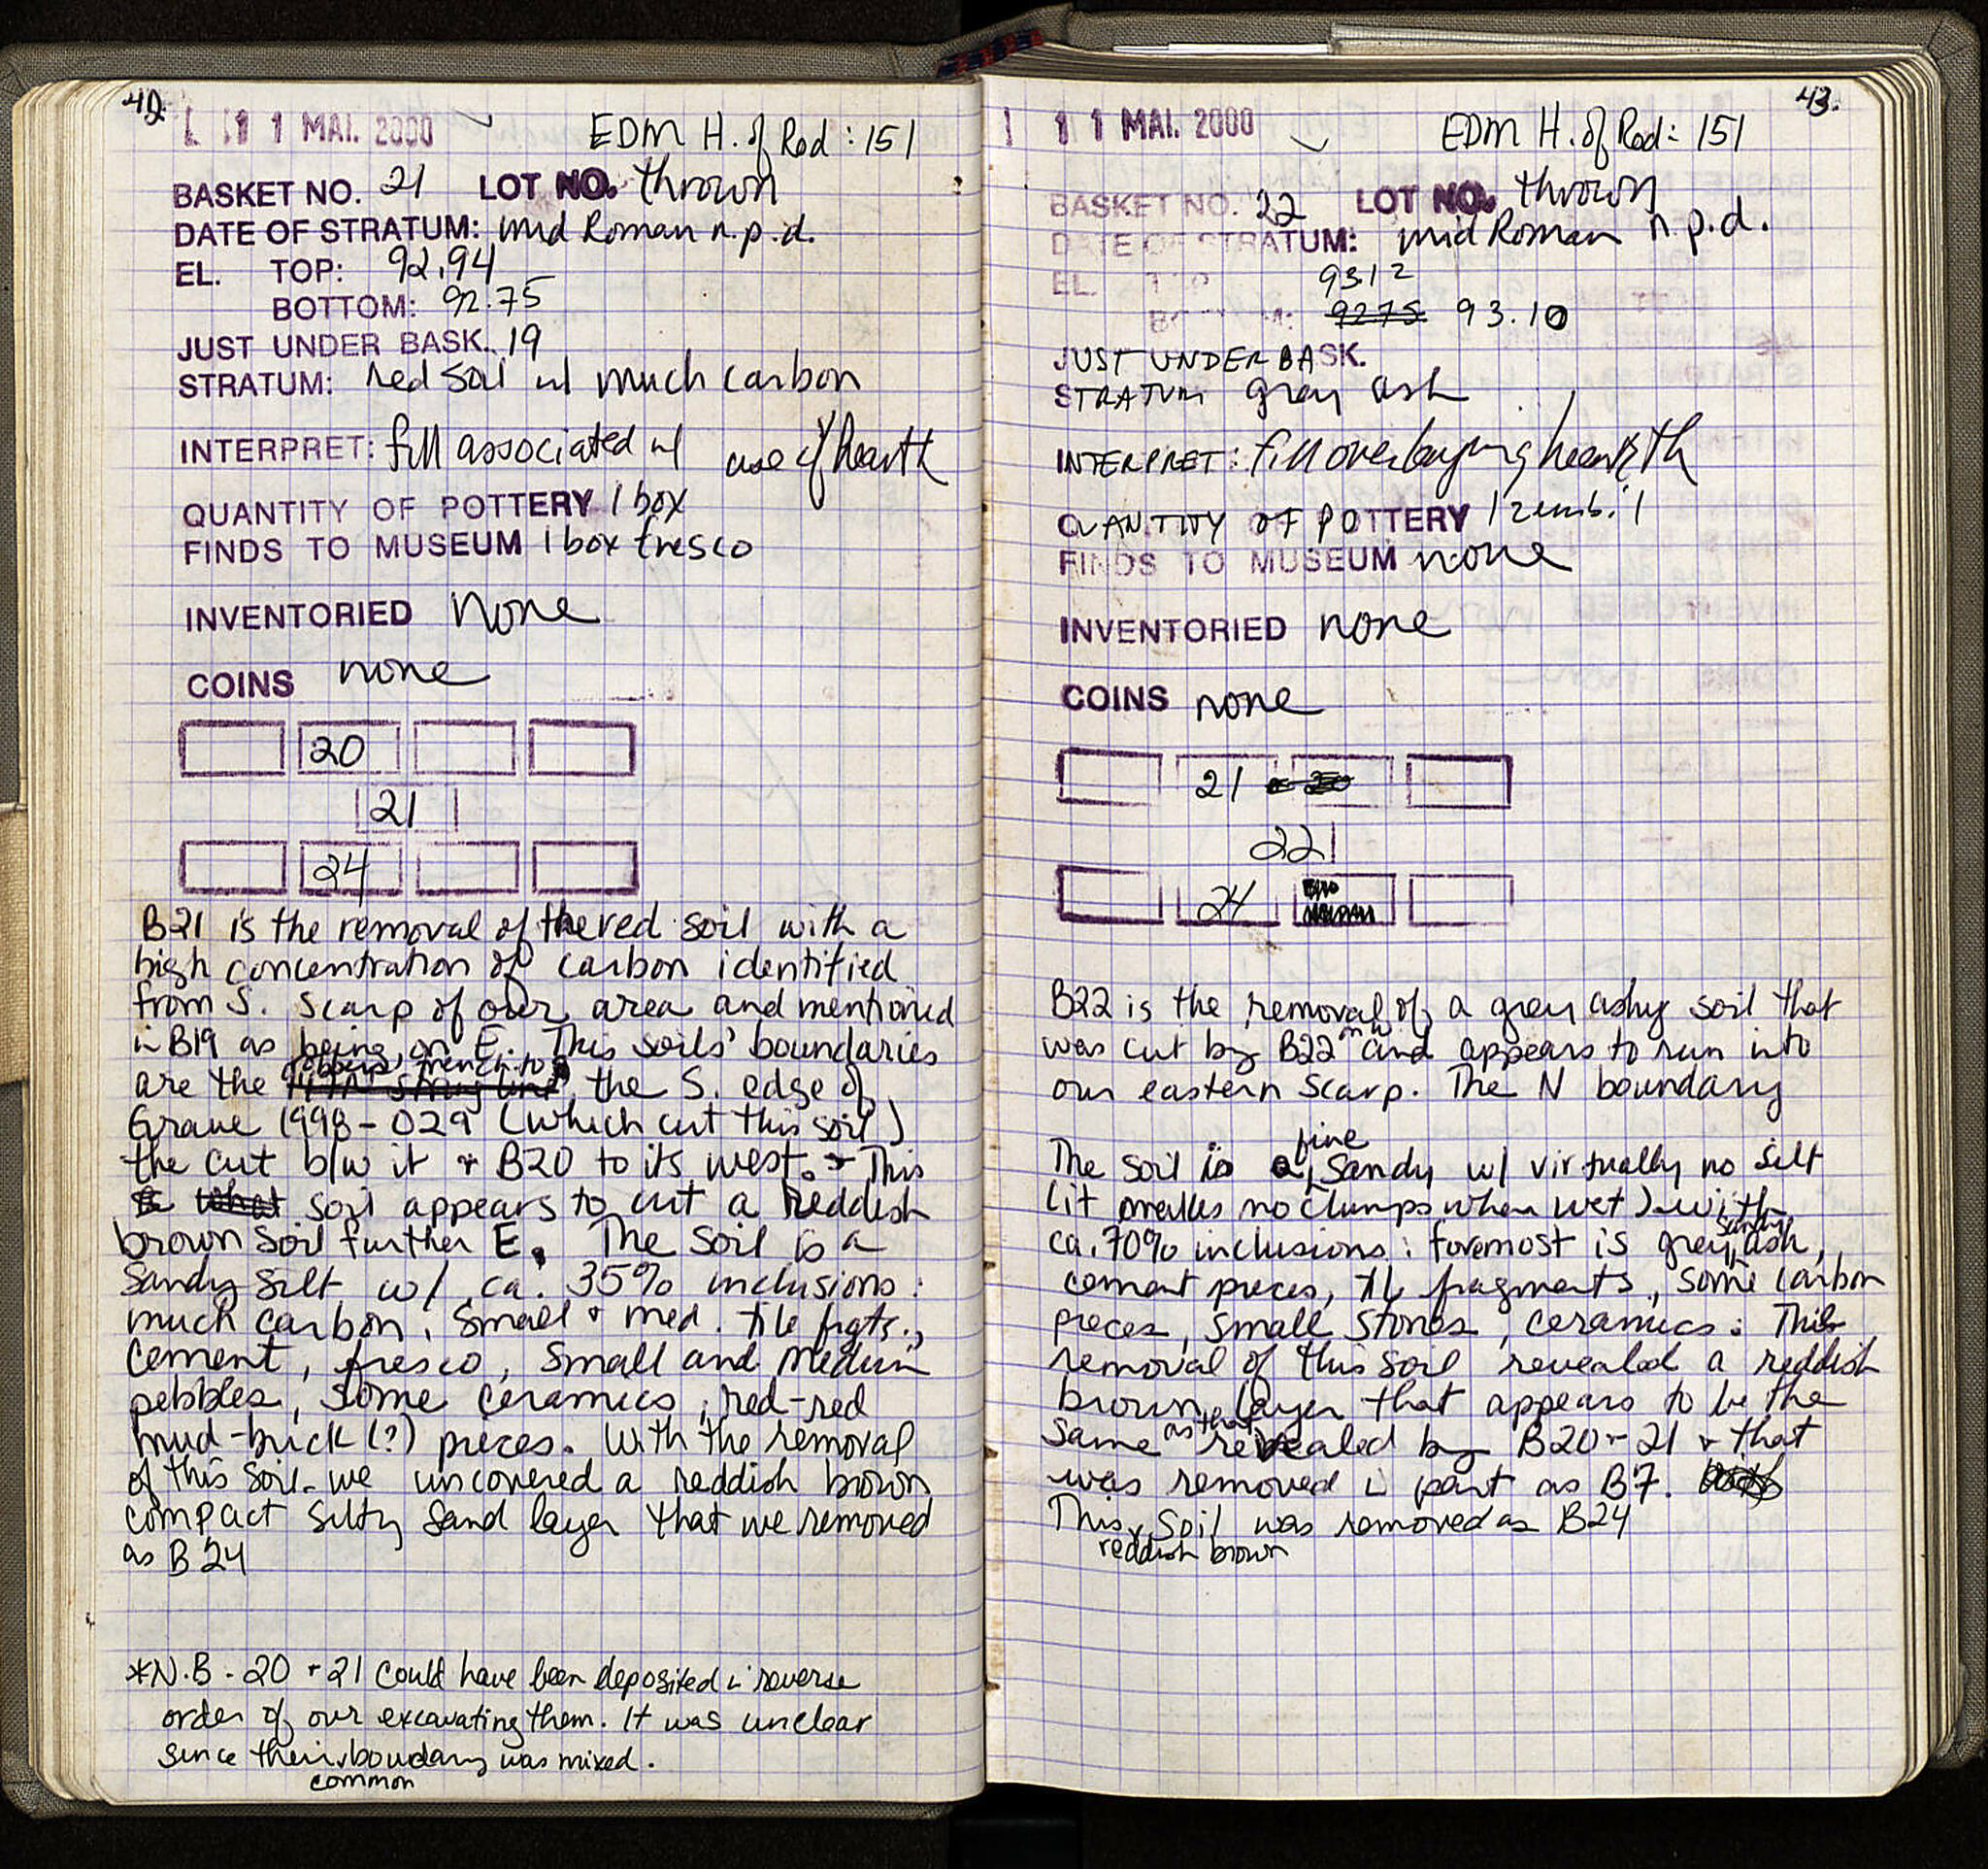 42.
11 MAI. 2000
EDM H. of Rod: 151
BASKET NO. 21 LOT NO. thrown
DATE OF STRATUM: mid Roman n.p.d.
EL. TOP: 92.94
BOTTOM: 92.75
JUST UNDER BASK. 19
STRATUM: red soil w/ much carbon
INTERPRET: fill associated w/ use of hearth
QUANTITY OF POTTERY 1 box
FINDS TO MUSEUM 1 box fresco
INVENTORIED None
COINS none
20
21
24
B21 is the removal of the red soil with a
high concentration of carbon identified
from S. scarp of our area and mentioned
in B19 as being on E. This soils' boundaries
are the robbers trench to the S. edge of
Grave 1998-029 (which cut this soil)
the cut b/w it + B20 to its west. + This
soil appears to cut a reddish
brown soil further E. The soil is a
Sandy silt w/ ca. 35% inclusions:
much carbon, small + med. tile frgts.,
cement, fresco, small and medium
pebbles, some ceramics, red-red
mud-brick (?) pieces. With the removal
of this soil we uncovered a reddish brown
compact silty sand layer that we removed
as B24
*N.B. 20 + 21 could have been deposited in reverse
order of our excavating them. It was unclear
since their common boundary was mixed.
43.
11 MAI. 2000
EDM H. of Rod: 151
BASKET NO. 22 LOT NO. thrown
DATE OF STRATUM: mid Roman n.p.d.
EL. TOP 93.12
BOTTOM: 9275 93.10
JUST UNDER BASK.
STRATUM gray ash
INTERPRET: fill overlaying hearth
QUANTITY OF POTTERY 1 zembil
FINDS TO MUSEUM none
INVENTORIED none
COINS none
21
22
24
B22 is the removal of a grey ashy soil that
was cut by B22 and appears to run into
our eastern scarp. The N boundary
The soil is a fine sandy w/ virtually no silt
(it makes no clumps when wet) with
ca. 70% inclusions: foremost is grey sandy ash,
cement pieces, tile fragments, some carbon
pieces, small stones, ceramics. This
removal of this soil revealed a reddish
brown layer that appears to be the
same as that revealed by B20 + 21 + that
was removed in part as B7.
This reddish brown soil was removed as B24